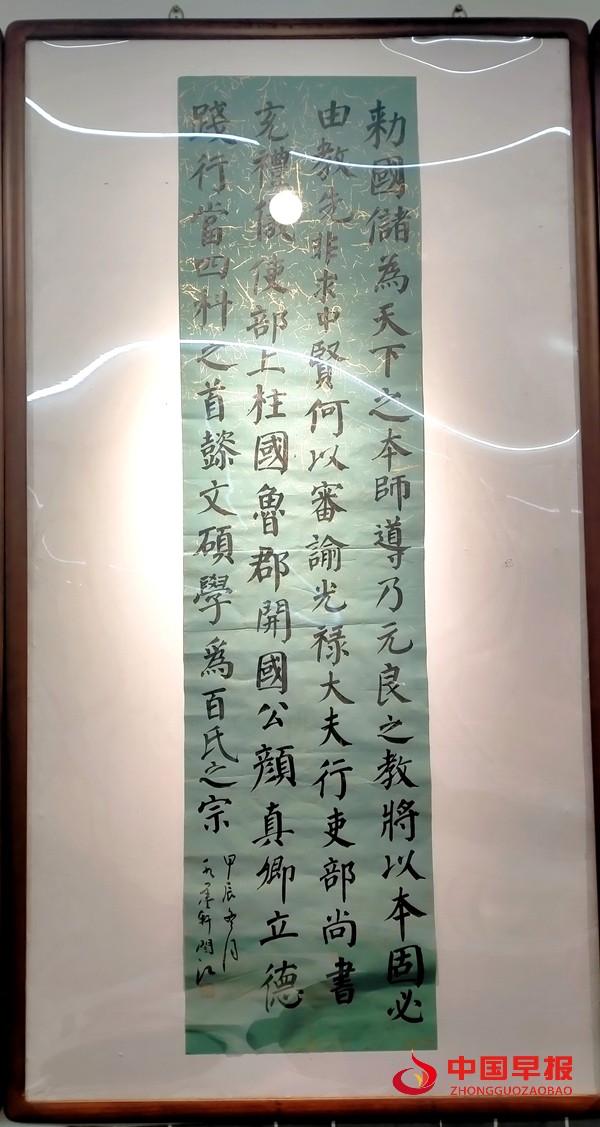 勑國儲為天下之本師導乃元良之教將以本固必
由教先非求中賢何以審諭光禄大夫行吏部尚書
充禮儀使部上柱國魯郡開國公顔真卿立德
踐行當四科之首懿文碩學爲百氏之宗
甲辰冬月
墨軒
中国早报
ZHONGGUOZAOBAO